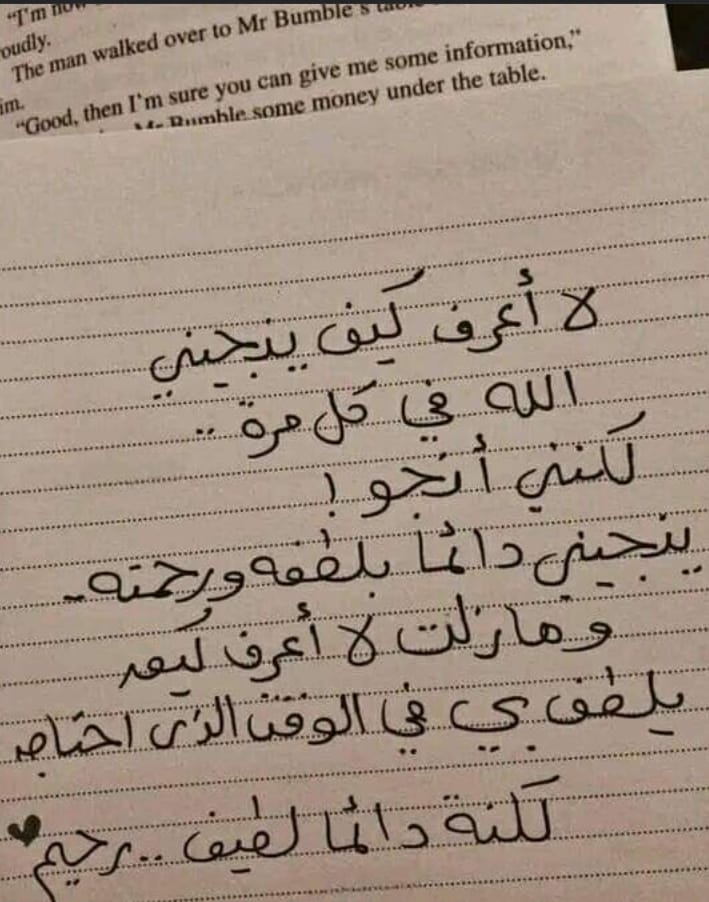 "I'm now
oudly.
The man walked over to Mr Bumble's table
im.
"Good, then I'm sure you can give me some information,"
Mr Bumble some money under the table.
لا أعرف كيف ينجيني
الله في كل مرة ..
لكنني أنجو !
ينجيني دائما بلطفه ورحمته ..
وما زلت لا أعرف كيف
يلطف بي في الوقت الذي احتاج
لكنة دائما لطيف .. رحيم